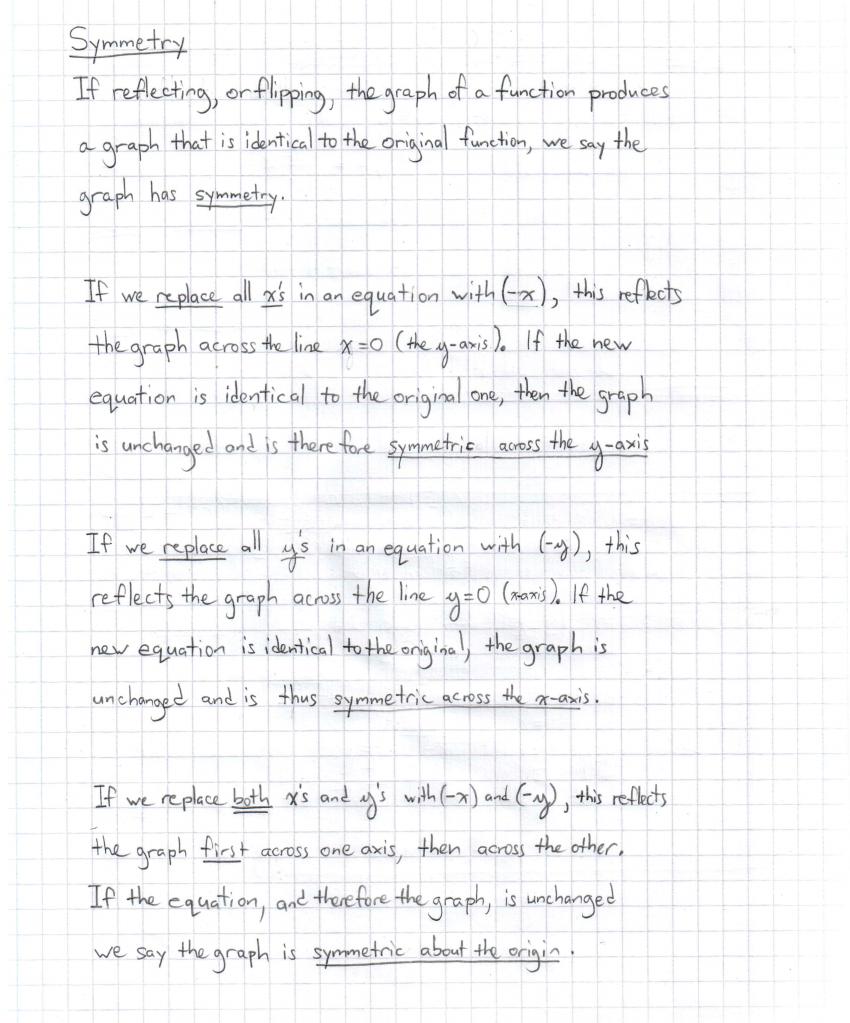 Symmetry
If reflecting, or flipping, the graph of a function produces
a graph that is identical to the original function, we say the
graph has symmetry.
If we replace all x's in an equation with (-x), this reflects
the graph across the line x=0 (the y-axis). If the new
equation is identical to the original one, then the graph
is unchanged and is therefore symmetric across the y-axis
If we replace all y's in an equation with (-y), this
reflects the graph across the line y=0 (x-axis). If the
new equation is identical to the original, the graph is
unchanged and is thus symmetric across the x-axis.
If we replace both x's and y's with (-x) and (-y), this reflects
the graph first across one axis, then across the other.
If the equation, and therefore the graph, is unchanged
we say the graph is symmetric about the origin.